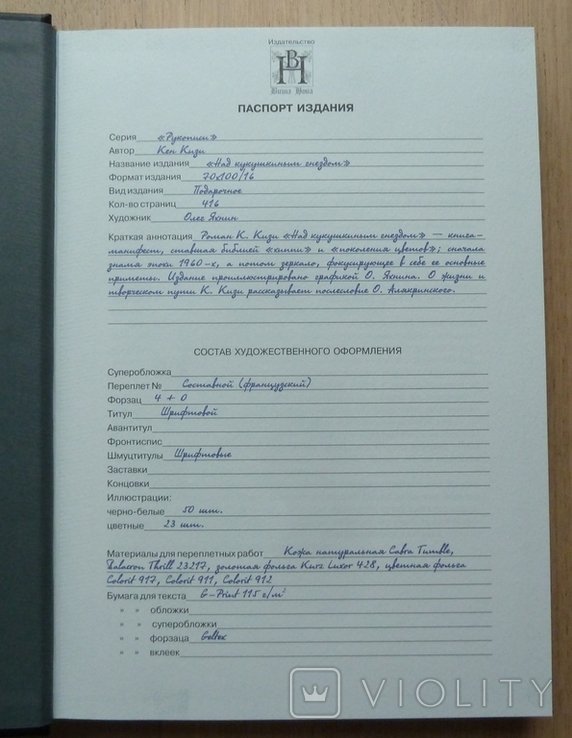 Издательство
ВН
Вита Нова
ПАСПОРТ ИЗДАНИЯ
Серия «Рукописи»
Автор Кен Кизи
Название издания «Над кукушкиным гнездом»
Формат издания 70х100/16
Вид издания Подарочное
Кол-во страниц 416
Художник Олег Яхнин
Краткая аннотация Роман К. Кизи «Над кукушкиным гнездом» — книга-
манифест, ставшая библией «хиппи» и «поколения цветов»; сначала
знамя эпохи 1960-х, а потом зеркало, фокусирующее в себе ее основные
приметы. Издание проиллюстрировано графикой О. Яхнина. О жизни и
творческом пути К. Кизи рассказывает послесловие О. Алякринского.
СОСТАВ ХУДОЖЕСТВЕННОГО ОФОРМЛЕНИЯ
Суперобложка
Переплет № Составной (французский)
Форзац 4 + 0
Титул Шрифтовой
Авантитул
Фронтиспис
Шмуцтитулы Шрифтовые
Заставки
Концовки
Иллюстрации:
черно-белые 50 шт.
цветные 23 шт.
Материалы для переплетных работ Кожа натуральная Cabra Tumble,
Balacron Thrill 23217, золотая фольга Kurz Luxor 428, цветная фольга
Colorit 917, Colorit 911, Colorit 912
Бумага для текста G-Print 115 г/м²
» » обложки
» » суперобложки
» » форзаца Geltex
» » вклеек
VIOLITY